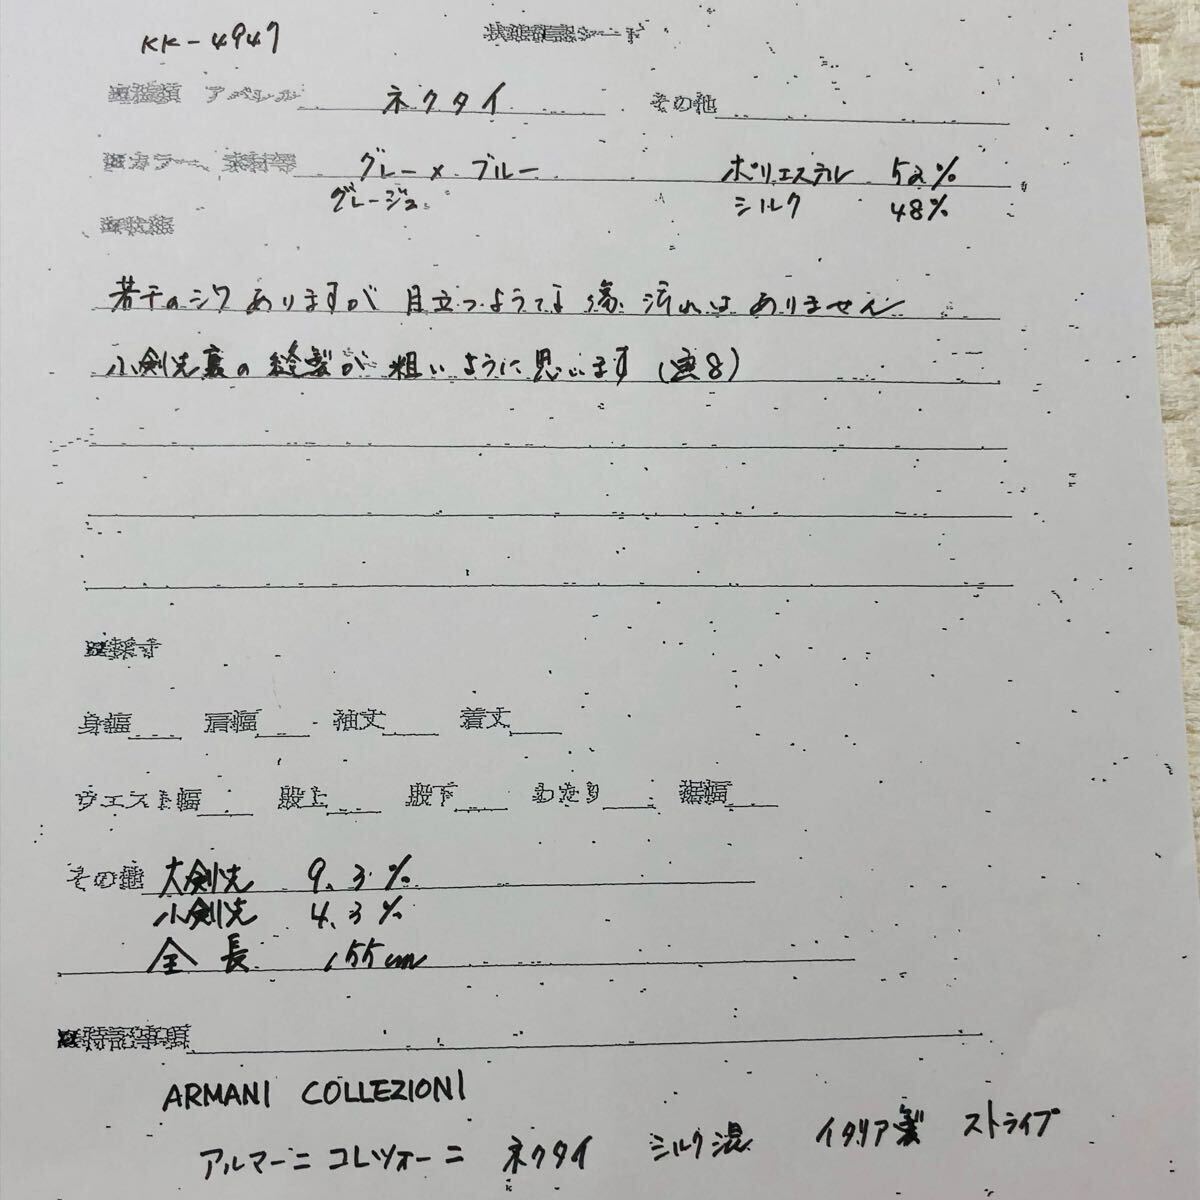 KK-4947
状態確認シート
■種類 アパレル ネクタイ その他
■カラー、素材等 グレー×ブルー ポリエステル 52%
グレージュ シルク 48%
■状態
若干のシワありますが 目立つような傷、汚れはありません
小剣先裏の縫製が粗いように思います(画8)
■採寸
身幅 肩幅 袖丈 着丈
ウエスト幅 股上 股下 わたり 裾幅
その他 大剣先 9.3%
小剣先 4.3%
全長 155cm
■特記事項
ARMANI COLLEZIONI
アルマーニ コレツォーニ ネクタイ シルク混 イタリア製 ストライプ